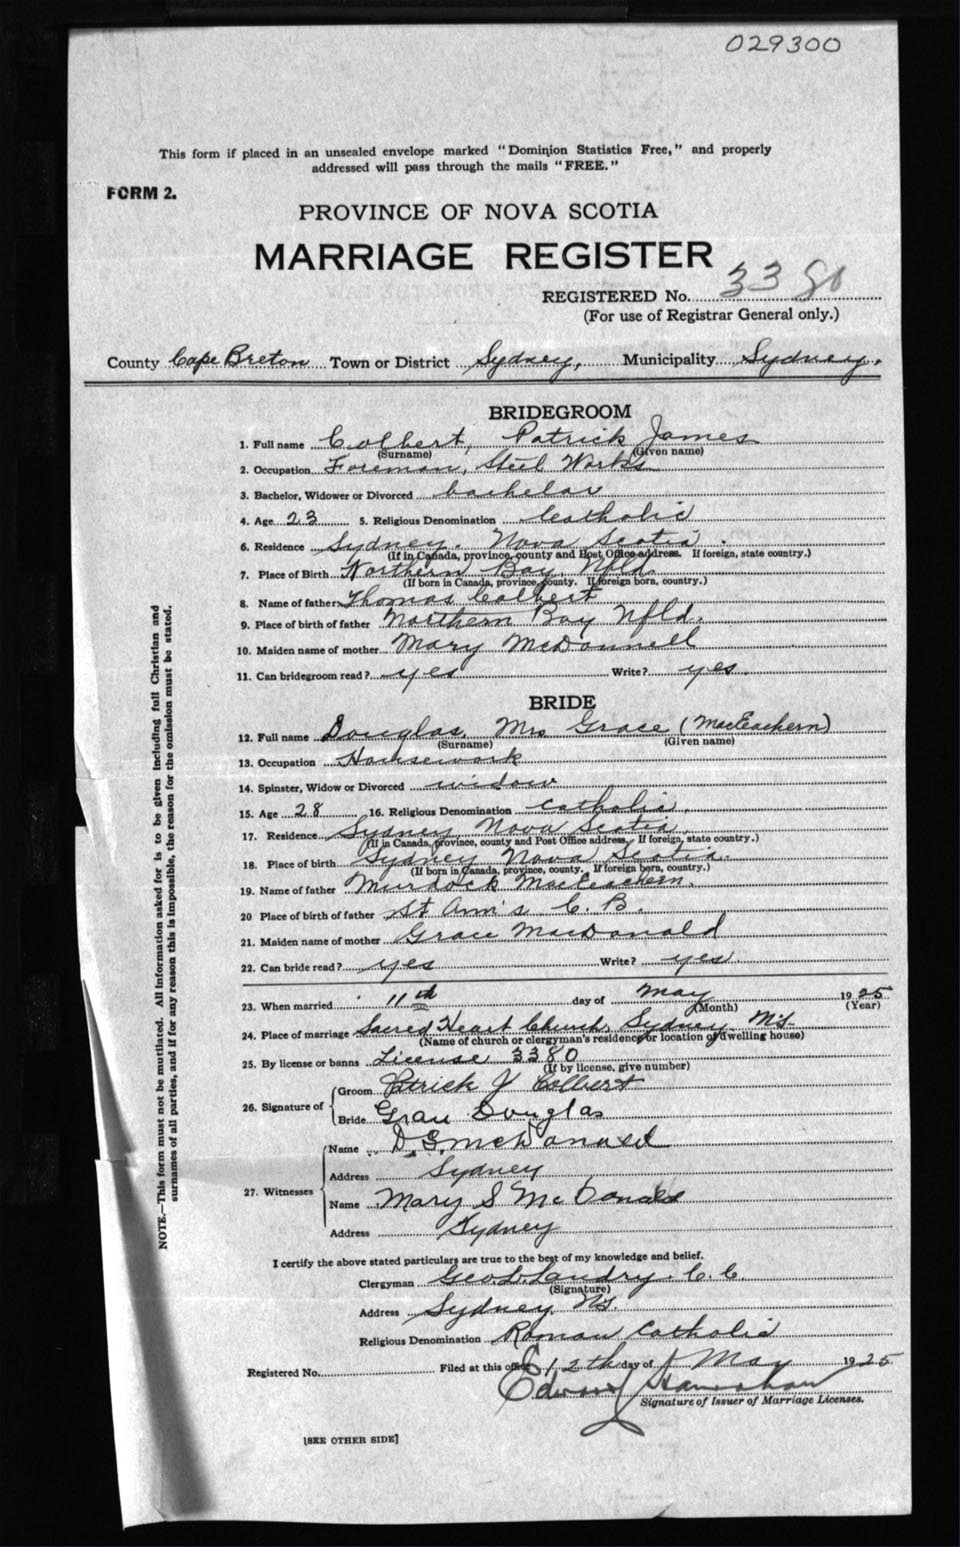 029300
This form if placed in an unsealed envelope marked "Dominion Statistics Free," and properly
addressed will pass through the mails "FREE."
FORM 2.
PROVINCE OF NOVA SCOTIA
MARRIAGE REGISTER
REGISTERED No. 3380
(For use of Registrar General only.)
County Cape Breton Town or District Sydney, Municipality Sydney,
BRIDEGROOM
1. Full name Colbert, Patrick James
(Surname) (Given name)
2. Occupation Foreman, Steel Works
3. Bachelor, Widower or Divorced bachelor
4. Age 23 5. Religious Denomination Catholic
6. Residence Sydney. Nova Scotia.
(If in Canada, province, county and Post Office address. If foreign, state country.)
7. Place of Birth Northern Bay, Nfld.
(If born in Canada, province, county. If foreign born, country.)
8. Name of father Thomas Colbert
9. Place of birth of father Northern Bay Nfld.
10. Maiden name of mother Mary McDonnell
11. Can bridegroom read? yes Write? yes.
BRIDE
12. Full name Douglas, Mrs Grace (MacEachern)
(Surname) (Given name)
13. Occupation Housework
14. Spinster, Widow or Divorced widow
15. Age 28 16. Religious Denomination Catholic.
17. Residence Sydney, Nova Scotia.
(If in Canada, province, county and Post Office address. If foreign, state country.)
18. Place of birth Sydney Nova Scotia.
(If born in Canada, province, county. If foreign born, country.)
19. Name of father Murdock MacEachern.
20 Place of birth of father St Ann's C. B.
21. Maiden name of mother Grace MacDonald
22. Can bride read? yes Write? yes.
23. When married 11th day of May 1925
(Month) (Year)
24. Place of marriage Sacred Heart Church, Sydney. N.S.
(Name of church or clergyman's residence or location of dwelling house)
25. By license or banns License 3380
(If by license, give number)
26. Signature of
Groom Patrick J Colbert
Bride Grace Douglas
27. Witnesses
Name D. G. McDonald
Address Sydney
Name Mary S McDonald
Address Sydney
I certify the above stated particulars are true to the best of my knowledge and belief.
Clergyman Geo. L. Landry. C. C.
(Signature)
Address Sydney, N.S.
Religious Denomination Roman Catholic
Registered No. Filed at this office 12th day of May 1925
Edward
Signature of Issuer of Marriage Licenses.
[SEE OTHER SIDE]
NOTE.—This form must not be mutilated. All information asked for is to be given including full Christian and
surnames of all parties, and if for any reason this is impossible, the reason for the omission must be stated.